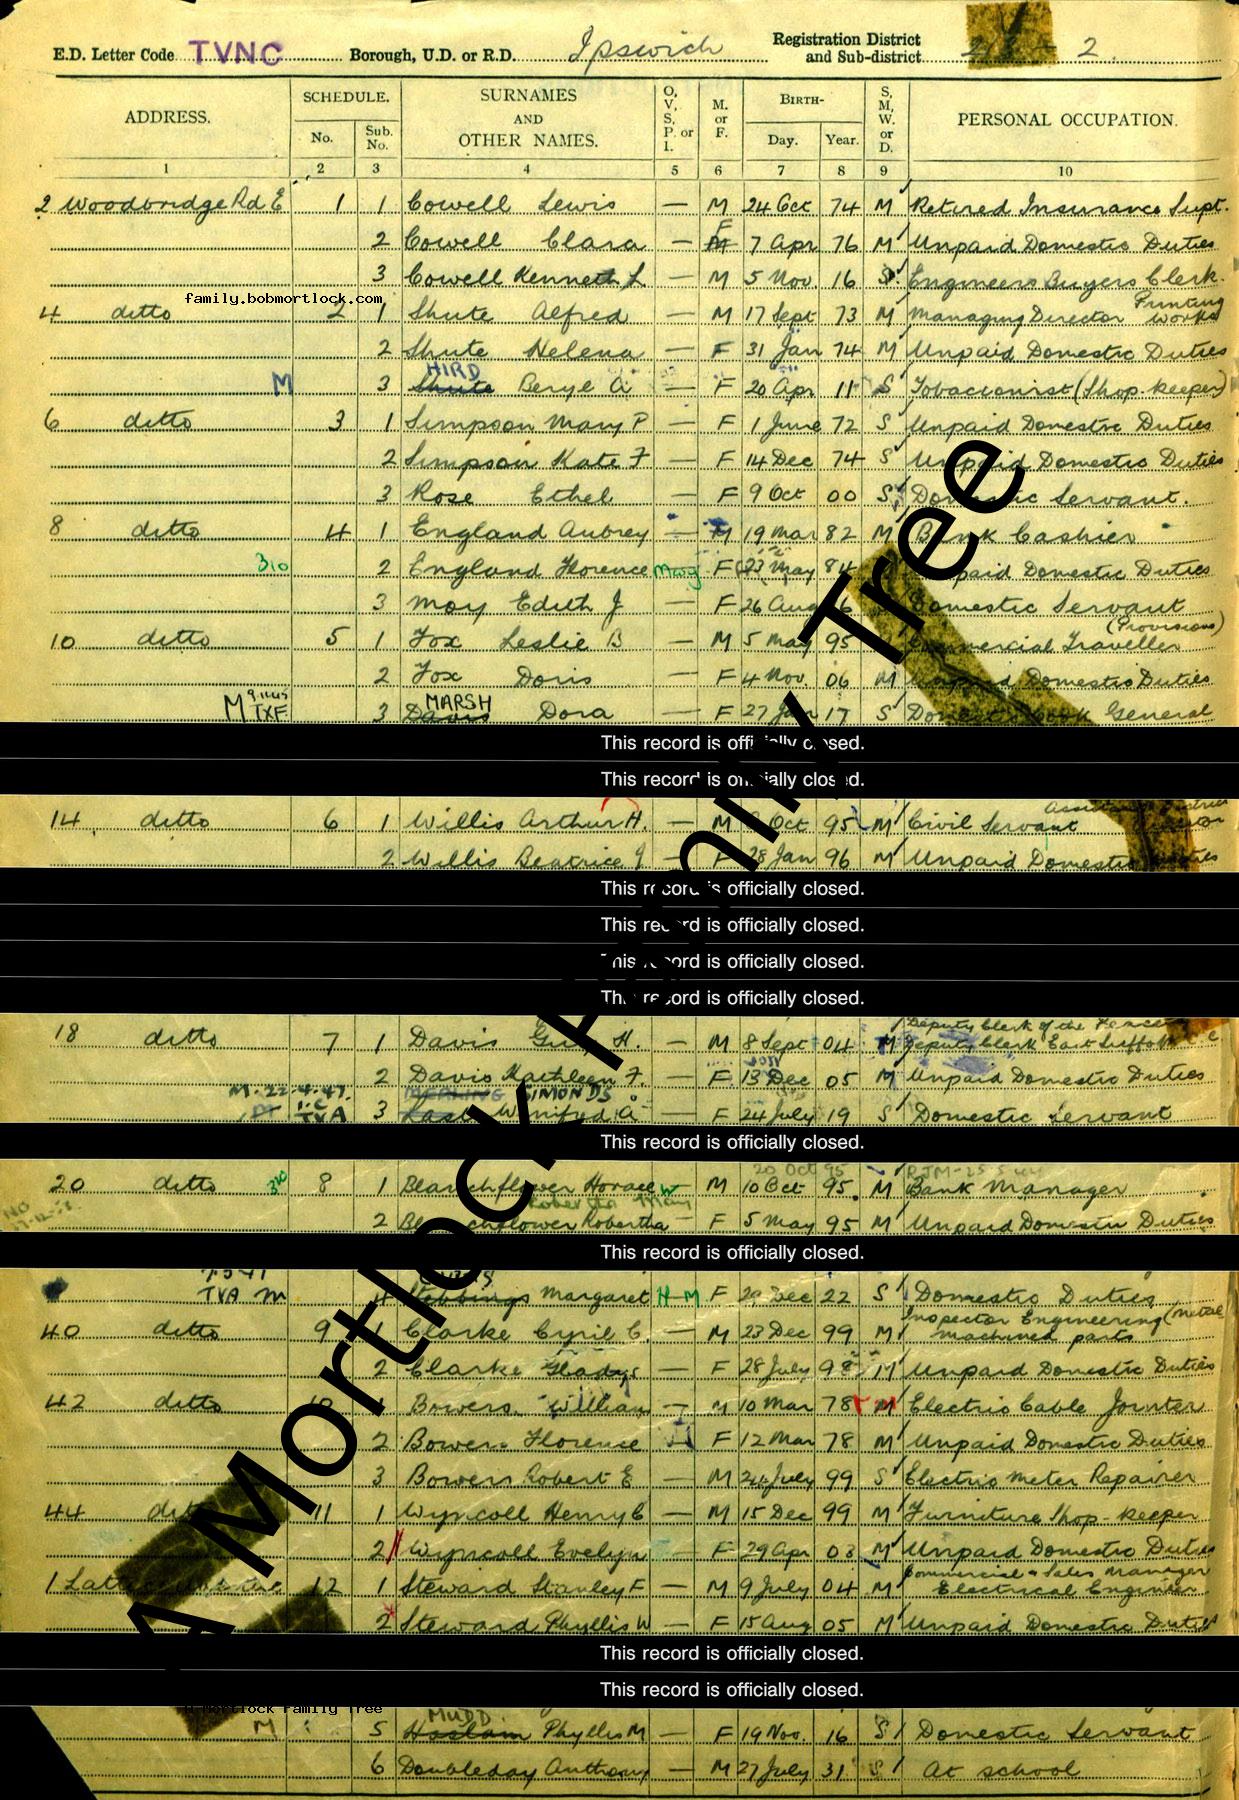 E.D. Letter Code TVNC Borough, U.D. or R.D. Ipswich Registration District and Sub-district 2
ADDRESS. SCHEDULE. No. Sub. No. SURNAMES AND OTHER NAMES. O, V, S, P. or I. M. or F. BIRTH- Day. Year. S, M, W. or D. PERSONAL OCCUPATION.
1 2 3 4 5 6 7 8 9 10
2 Woodbridge Rd E 1 1 Cowell Lewis — M 24 Oct 74 M Retired Insurance Supt.
F
2 Cowell Clara — M 7 Apr 76 M Unpaid Domestic Duties
3 Cowell Kenneth L — M 5 Nov. 16 S Engineers Buyers Clerk.
family.bobmortlock.com
4 ditto 2 1 Shute Alfred — M 17 Sept 73 M Managing Director Printing works
2 Shute Helena — F 31 Jan 74 M Unpaid Domestic Duties
HIRD
M 3 Shute Beryl A — F 20 Apr 11 S Tobacconist (Shop-keeper)
6 ditto 3 1 Simpson Mary P — F 1 June 72 S Unpaid Domestic Duties
2 Simpson Kate F — F 14 Dec 74 S Unpaid Domestic Duties
3 Rose Ethel — F 9 Oct 00 S Domestic Servant.
8 ditto 4 1 England Aubrey — M 19 Mar 82 M Bank Cashier
310 2 England Florence F 23 May Unpaid Domestic Duties
3 Moy Edith J — F 26 Aug Domestic Servant
10 ditto 5 1 Fox Leslie B — M 5 May 95 Commercial Traveller (Provisions)
2 Fox Doris — F 4 Nov. 06 M Unpaid Domestic Duties
MARSH
M TXF 3 Davis Dora — F 27 17 S Domestic Cook General
This record is officially closed.
This record is officially closed.
14 ditto 6 1 Willis Arthur H. — M Oct 95 M Civil Servant
2 Willis Beatrice J — F 28 Jan 96 M Unpaid Domestic Duties
This record is officially closed.
This record is officially closed.
This record is officially closed.
This record is officially closed.
Deputy Clerk of the
18 ditto 7 1 Davis H. — M 8 Sept 04 M Deputy Clerk East Suffolk
2 Davis Kathleen F. — F 13 Dec 05 M Unpaid Domestic Duties
M. 22.4.47. SIMONDS
TXA 3 Winifred A — F 24 July 19 S Domestic Servant
This record is officially closed.
20 Oct 95
20 ditto 310 8 1 Blanchflower Horace W M 10 Oct 95. M Bank Manager
2 Blanchflower Robertha — F 5 May 95 M Unpaid Domestic Duties
This record is officially closed.
TVA M 4 Stebbings Margaret H-M F 29 Dec 22 S Domestic Duties
40 ditto 9 1 Clarke Cyril C. — M 23 Dec 99 M Inspector Engineering (metal machined parts
2 Clarke Gladys — F 28 July 98 M Unpaid Domestic Duties
42 ditto 10 1 Bowers William — M 10 Mar 78 M Electric Cable Jointer
2 Bowers Florence F 12 Mar 78 M Unpaid Domestic Duties
3 Bowers Robert E — M 24 July 99 S Electric Meter Repairer
44 ditto 11 1 Wyncoll Henry C — M 15 Dec 99 M Furniture Shop-keeper
2 Wyncoll Evelyn F 29 Apr 03 M Unpaid Domestic Duties
1 12 1 Steward Stanley F — M 9 July 04 M Commercial & Sales Manager Electrical Engineer
2 Steward Phyllis W — F 15 Aug 05 M Unpaid Domestic Duties
This record is officially closed.
This record is officially closed.
A Mortlock Family Tree
MUDD
M 5 Haslam Phyllis M — F 19 Nov. 16 S Domestic Servant
6 Doubleday Anthony — M 27 July 31 S At school
A Mortlock Family Tree